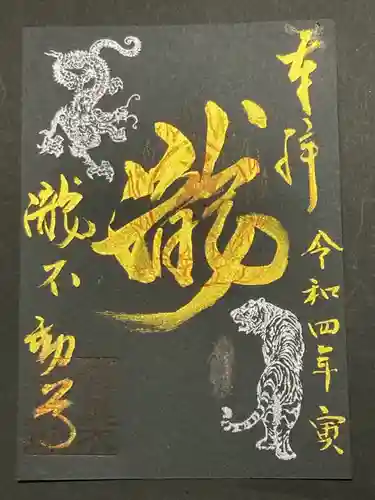 奉拝
令和四年 寅
龍
瀧不動尊